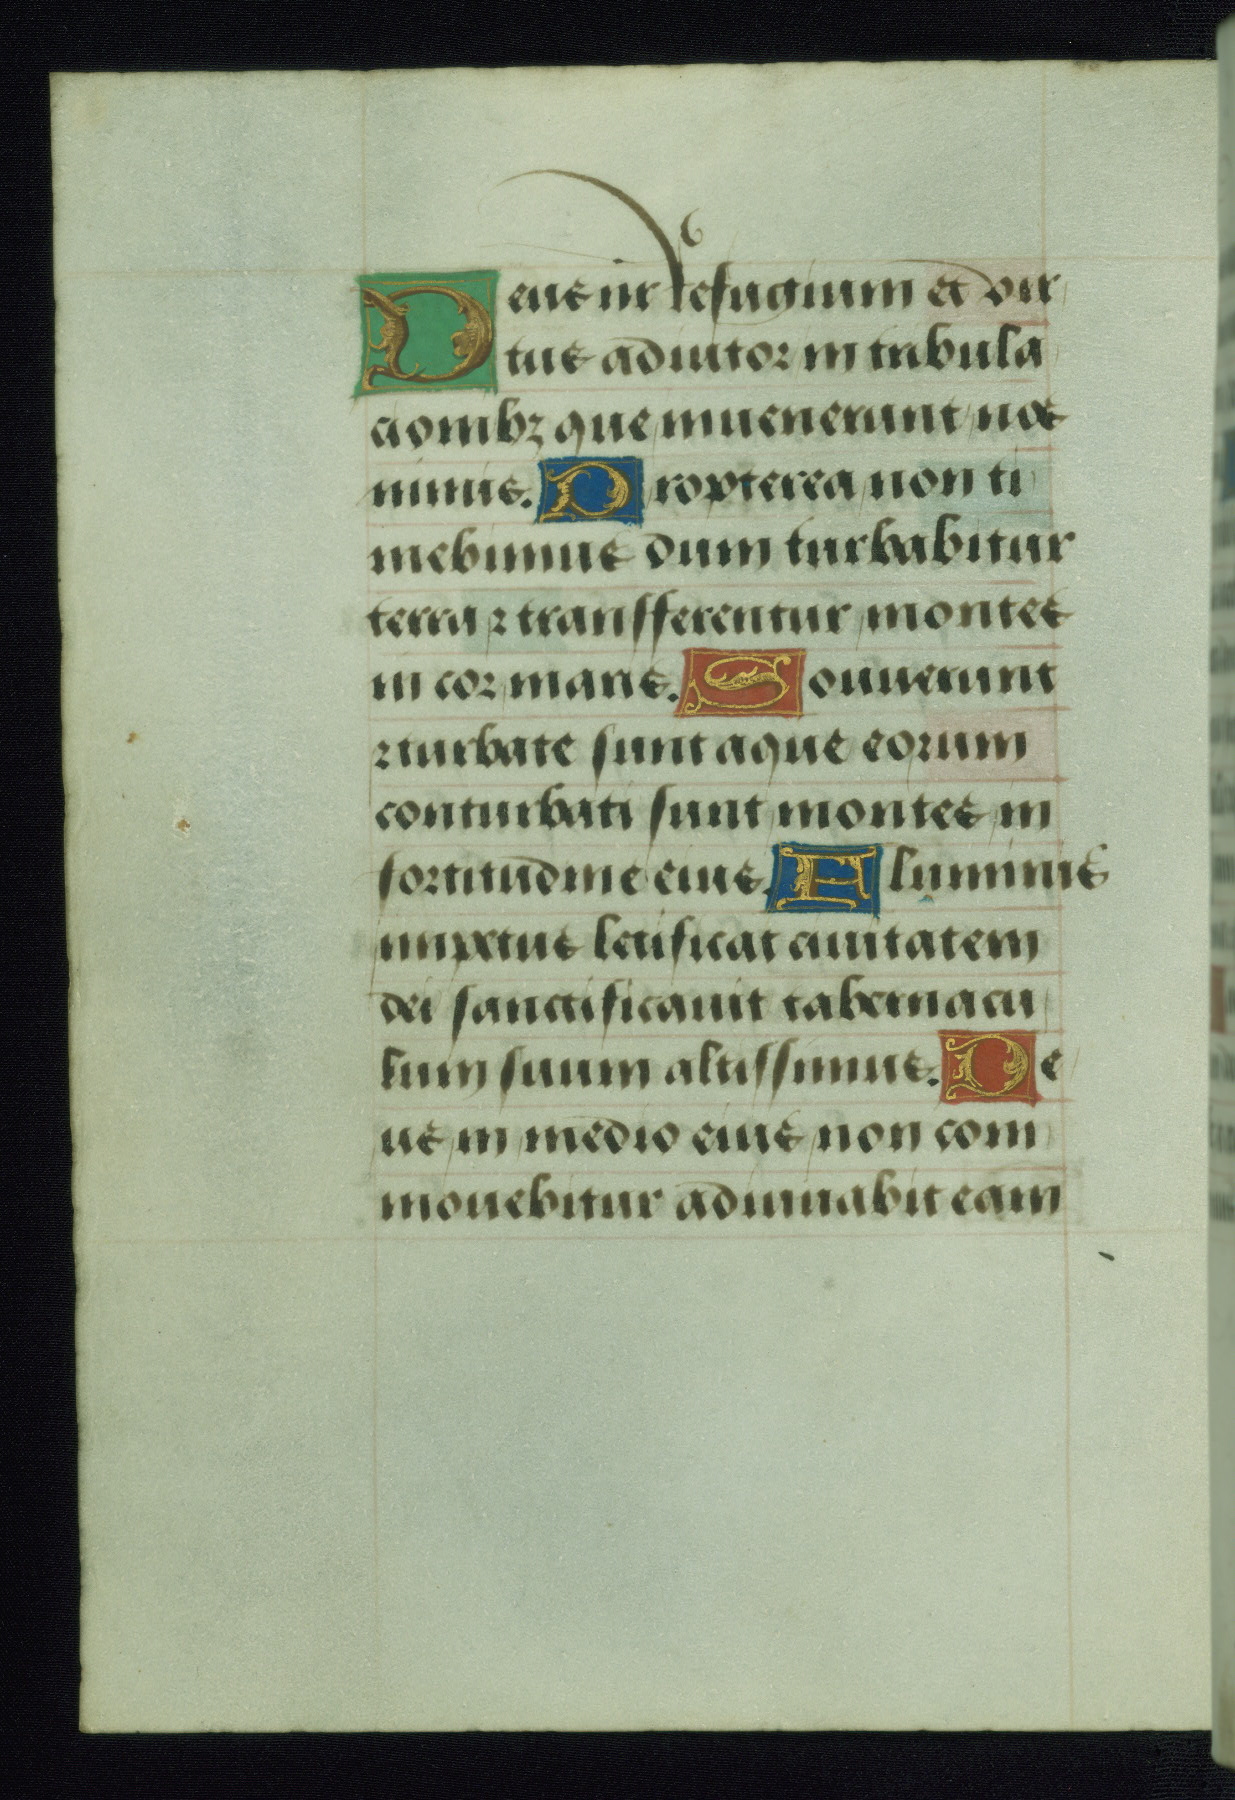 Deus nr̄ refugium et vir
tus adiutor in tribula
cionibꝫ que inuenerunt nos
nimis. Propterea non ti
mebimus dum turbabitur
terra ⁊ transfferentur montes
in cor maris. Sonuerunt
⁊ turbate sunt aque eorum
conturbati sunt montes in
fortitudine eius. Fluminis
impetus letificat ciuitatem
dei sanctificauit tabernacu
lum suum altissimus. De
us in medio eius non com
mouebitur adiuuabit eam